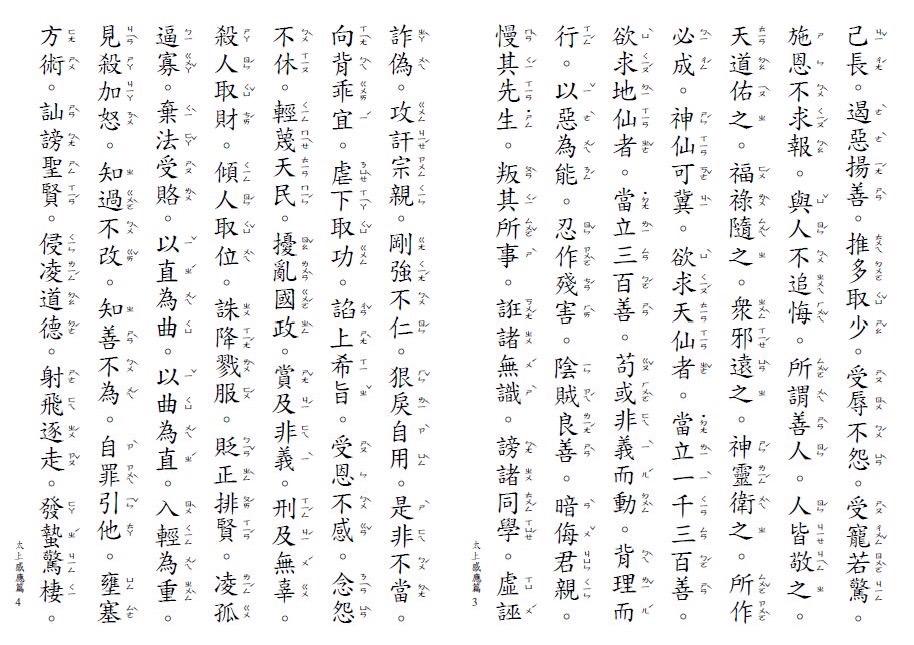 己長。遏惡揚善。推多取少。受辱不怨。受寵若驚。
施恩不求報。與人不追悔。所謂善人。人皆敬之。
天道佑之。福祿隨之。眾邪遠之。神靈衛之。所作
必成。神仙可冀。欲求天仙者。當立一千三百善。
欲求地仙者。當立三百善。苟或非義而動。背理而
行。以惡為能。忍作殘害。陰賊良善。暗侮君親。
慢其先生。叛其所事。誑諸無識。謗諸同學。虛誣
太上感應篇 3
詐偽。攻訐宗親。剛強不仁。狠戾自用。是非不當。
向背乖宜。虐下取功。諂上希旨。受恩不感。念怨
不休。輕蔑天民。擾亂國政。賞及非義。刑及無辜。
殺人取財。傾人取位。誅降戮服。貶正排賢。凌孤
逼寡。棄法受賂。以直為曲。以曲為直。入輕為重。
見殺加怒。知過不改。知善不為。自罪引他。壅塞
方術。訕謗聖賢。侵凌道德。射飛逐走。發蟄驚棲。
太上感應篇 4